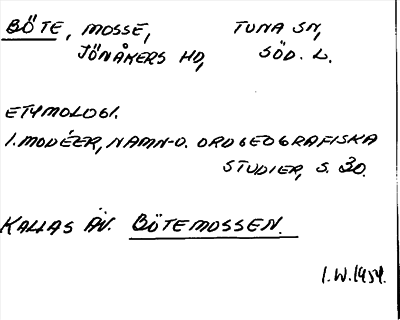 BÖTE, MOSSE, TUNA SN,
JÖNÅKERS HD, SÖD. L.
ETYMOLOGI.
I. MODÉER, NAMN- O. ORDGEOGRAFISKA
STUDIER, S. 30.
KALLAS ÄV. BÖTEMOSSEN.
I.W. 1954.